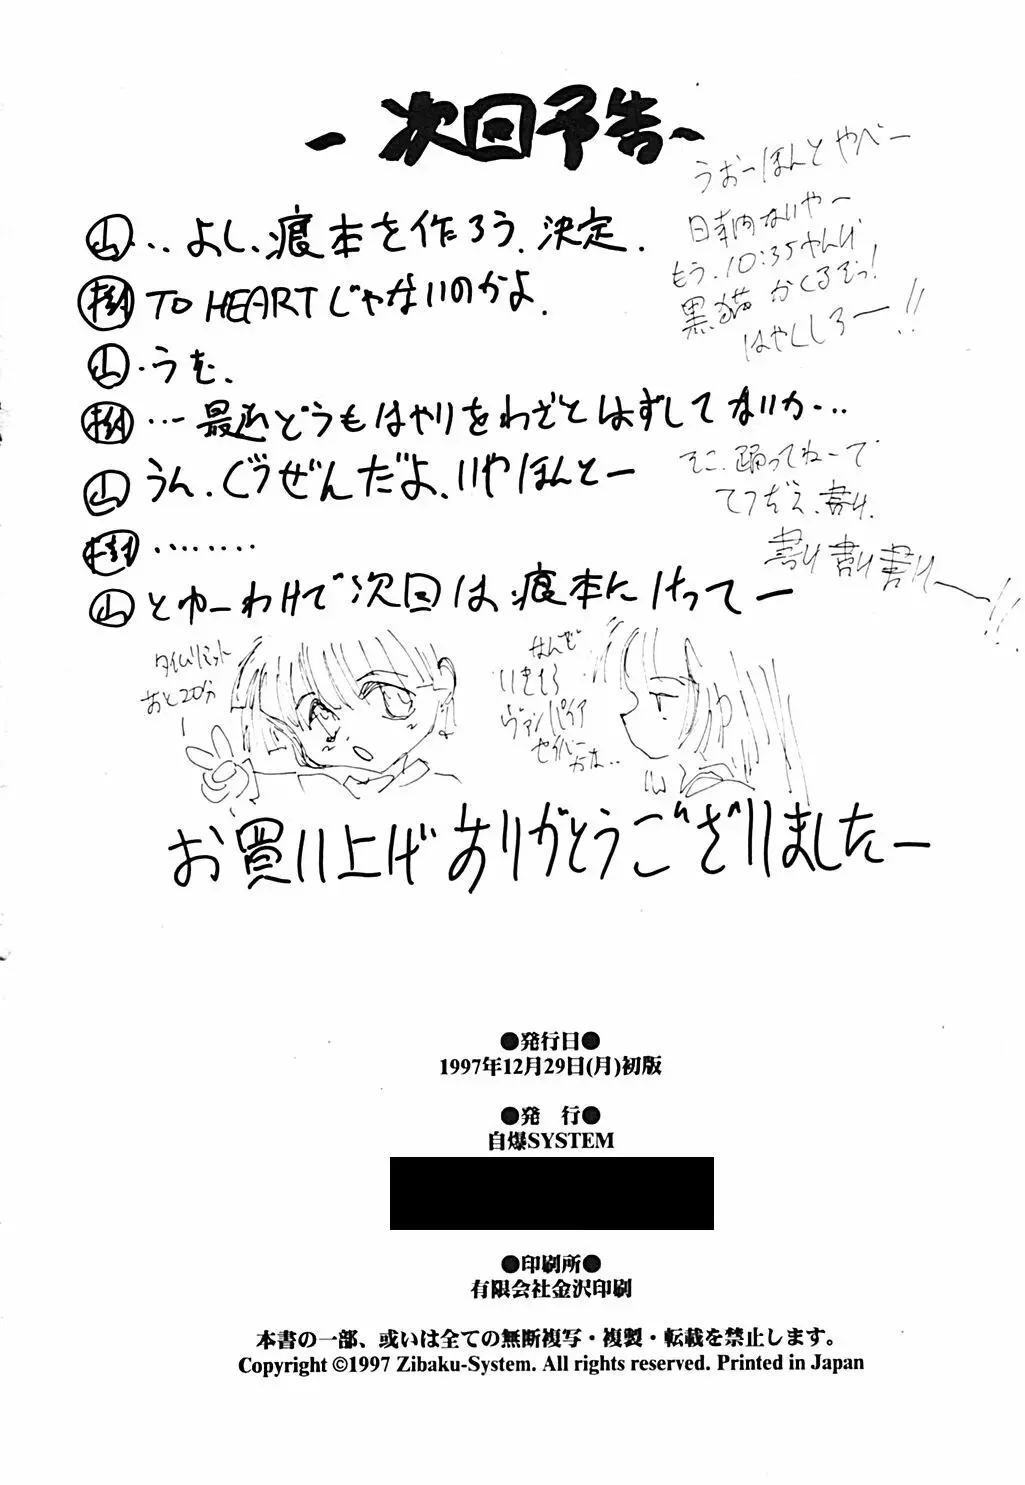 - 次回予告 -
山 ‥よし、痕本を作ろう。決定.
樹 TO HEARTじゃないのかよ.
山 ・うむ、
樹 …最近どうもはやりをわざとはずしてないか…
山 うん、ぐうぜんだよ、いやほんとー
樹 ………
山 とゆーわけで次回は、痕本にけってー
うおーほんとやべー
日本内ないやー
もう、10:35やんけ
黒猫 がくるぞっ!
はやくしろー!!
そこ、踊ってねーで
てつだえ、割り、
割り割り割りー!!
タイムリミット
あと20分
なんで
いきてろ
ヴァンパイア
セイバー
かな‥
お買い上げありがとうございましたー
●発行日●
1997年12月29日(月)初版
●発　行●
自爆SYSTEM
●印刷所●
有限会社金沢印刷
本書の一部、或いは全ての無断複写・複製・転載を禁止します。
Copyright ©1997 Zibaku-System. All rights reserved. Printed in Japan